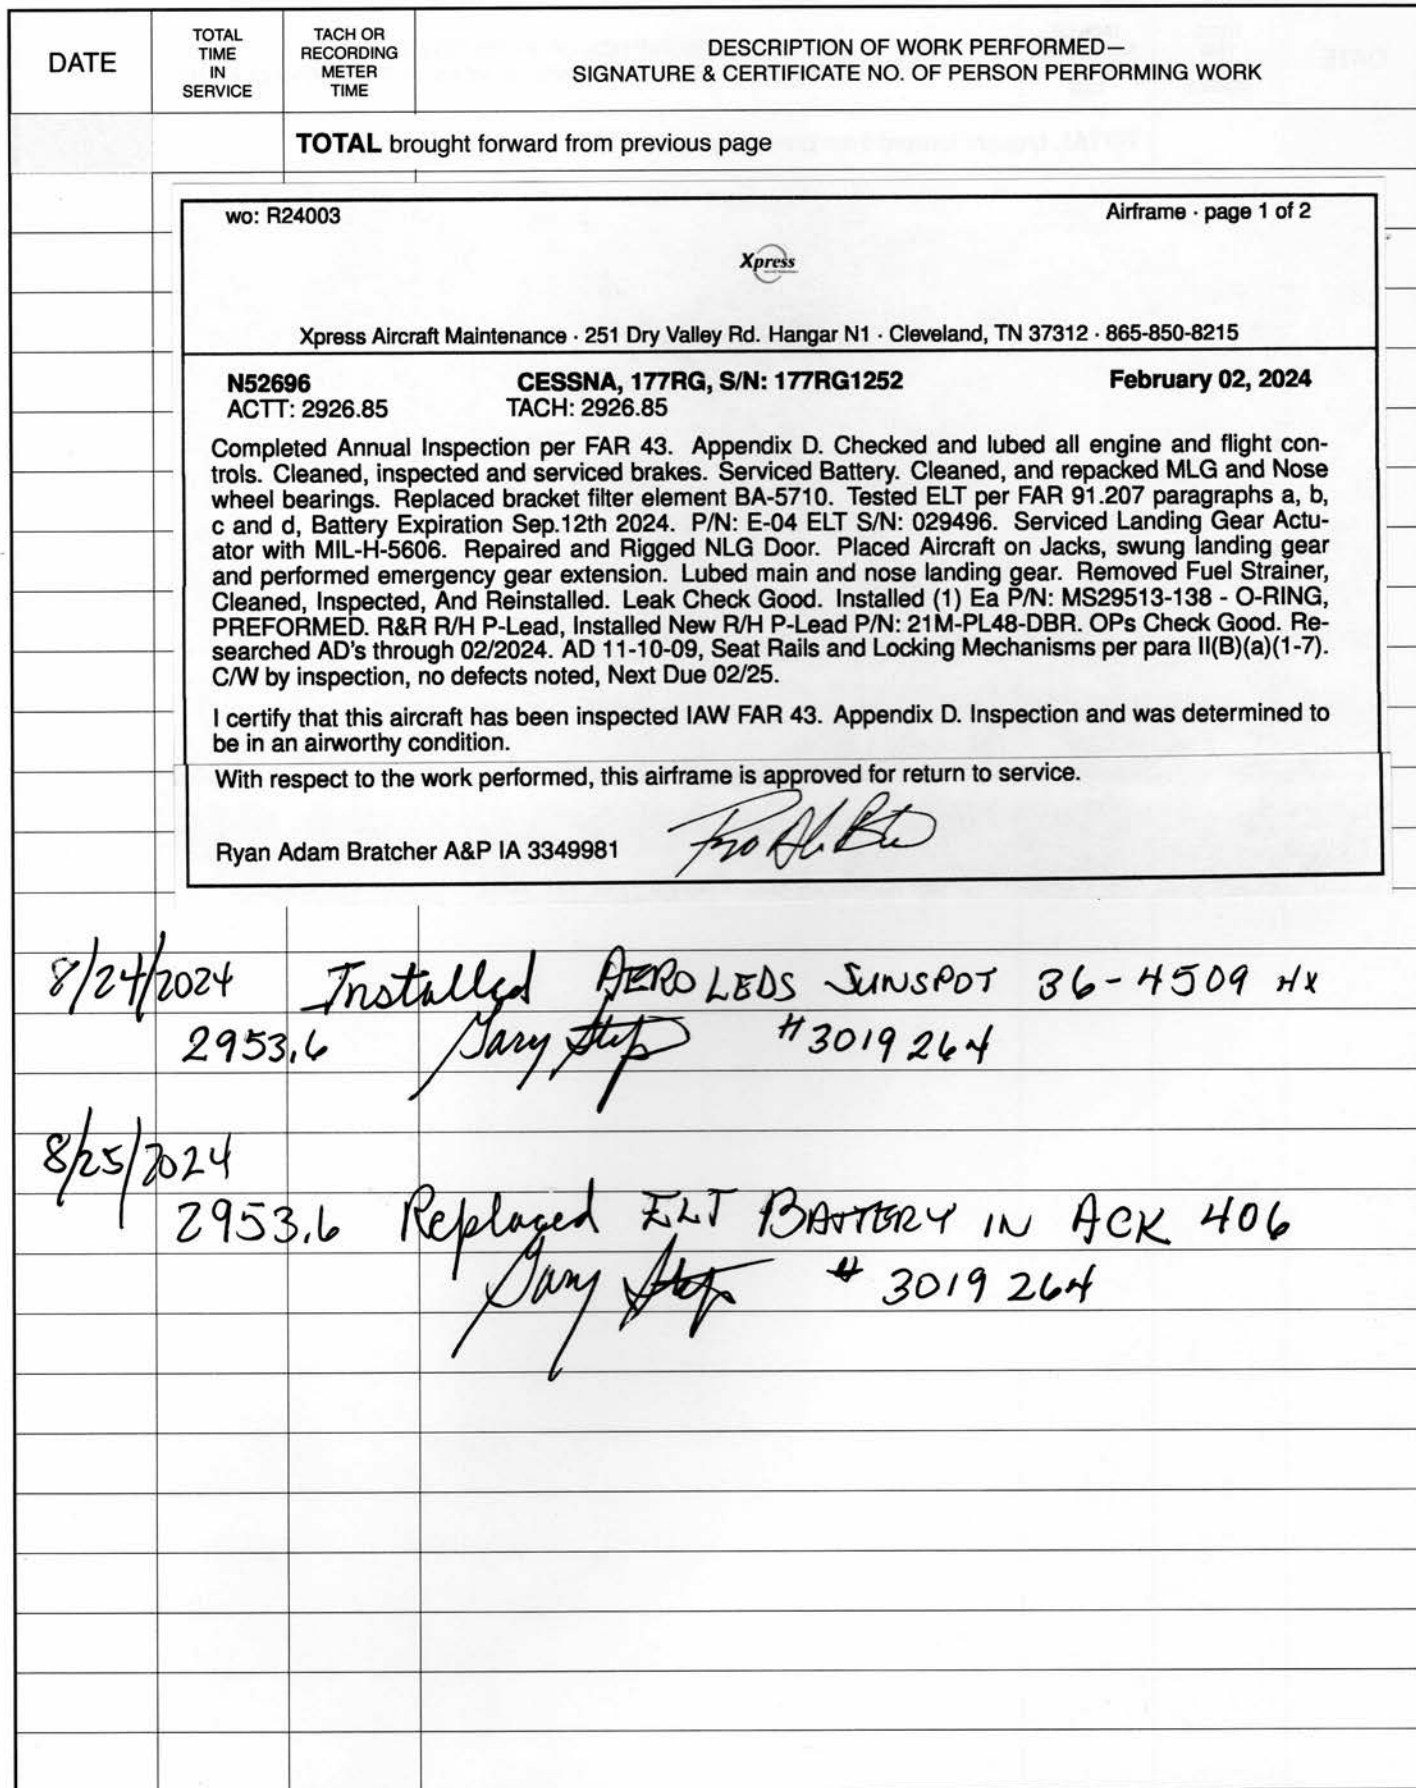 DATE
TOTAL
TIME
IN
SERVICE
TACH OR
RECORDING
METER
TIME
DESCRIPTION OF WORK PERFORMED—
SIGNATURE & CERTIFICATE NO. OF PERSON PERFORMING WORK
TOTAL brought forward from previous page
wo: R24003 Airframe · page 1 of 2
Xpress
Xpress Aircraft Maintenance · 251 Dry Valley Rd. Hangar N1 · Cleveland, TN 37312 · 865-850-8215
N52696 CESSNA, 177RG, S/N: 177RG1252 February 02, 2024
ACTT: 2926.85 TACH: 2926.85
Completed Annual Inspection per FAR 43. Appendix D. Checked and lubed all engine and flight con-
trols. Cleaned, inspected and serviced brakes. Serviced Battery. Cleaned, and repacked MLG and Nose
wheel bearings. Replaced bracket filter element BA-5710. Tested ELT per FAR 91.207 paragraphs a, b,
c and d, Battery Expiration Sep.12th 2024. P/N: E-04 ELT S/N: 029496. Serviced Landing Gear Actu-
ator with MIL-H-5606. Repaired and Rigged NLG Door. Placed Aircraft on Jacks, swung landing gear
and performed emergency gear extension. Lubed main and nose landing gear. Removed Fuel Strainer,
Cleaned, Inspected, And Reinstalled. Leak Check Good. Installed (1) Ea P/N: MS29513-138 - O-RING,
PREFORMED. R&R R/H P-Lead, Installed New R/H P-Lead P/N: 21M-PL48-DBR. OPs Check Good. Re-
searched AD's through 02/2024. AD 11-10-09, Seat Rails and Locking Mechanisms per para II(B)(a)(1-7).
C/W by inspection, no defects noted, Next Due 02/25.
I certify that this aircraft has been inspected IAW FAR 43. Appendix D. Inspection and was determined to
be in an airworthy condition.
With respect to the work performed, this airframe is approved for return to service.
Ryan Adam Bratcher A&P IA 3349981
8/24/2024 Installed AEROLEDS SUNSPOT 36-4509 HX
2953.6 Gary #3019264
8/25/2024
2953.6 Replaced ELT BATTERY IN ACK 406
Gary # 3019264